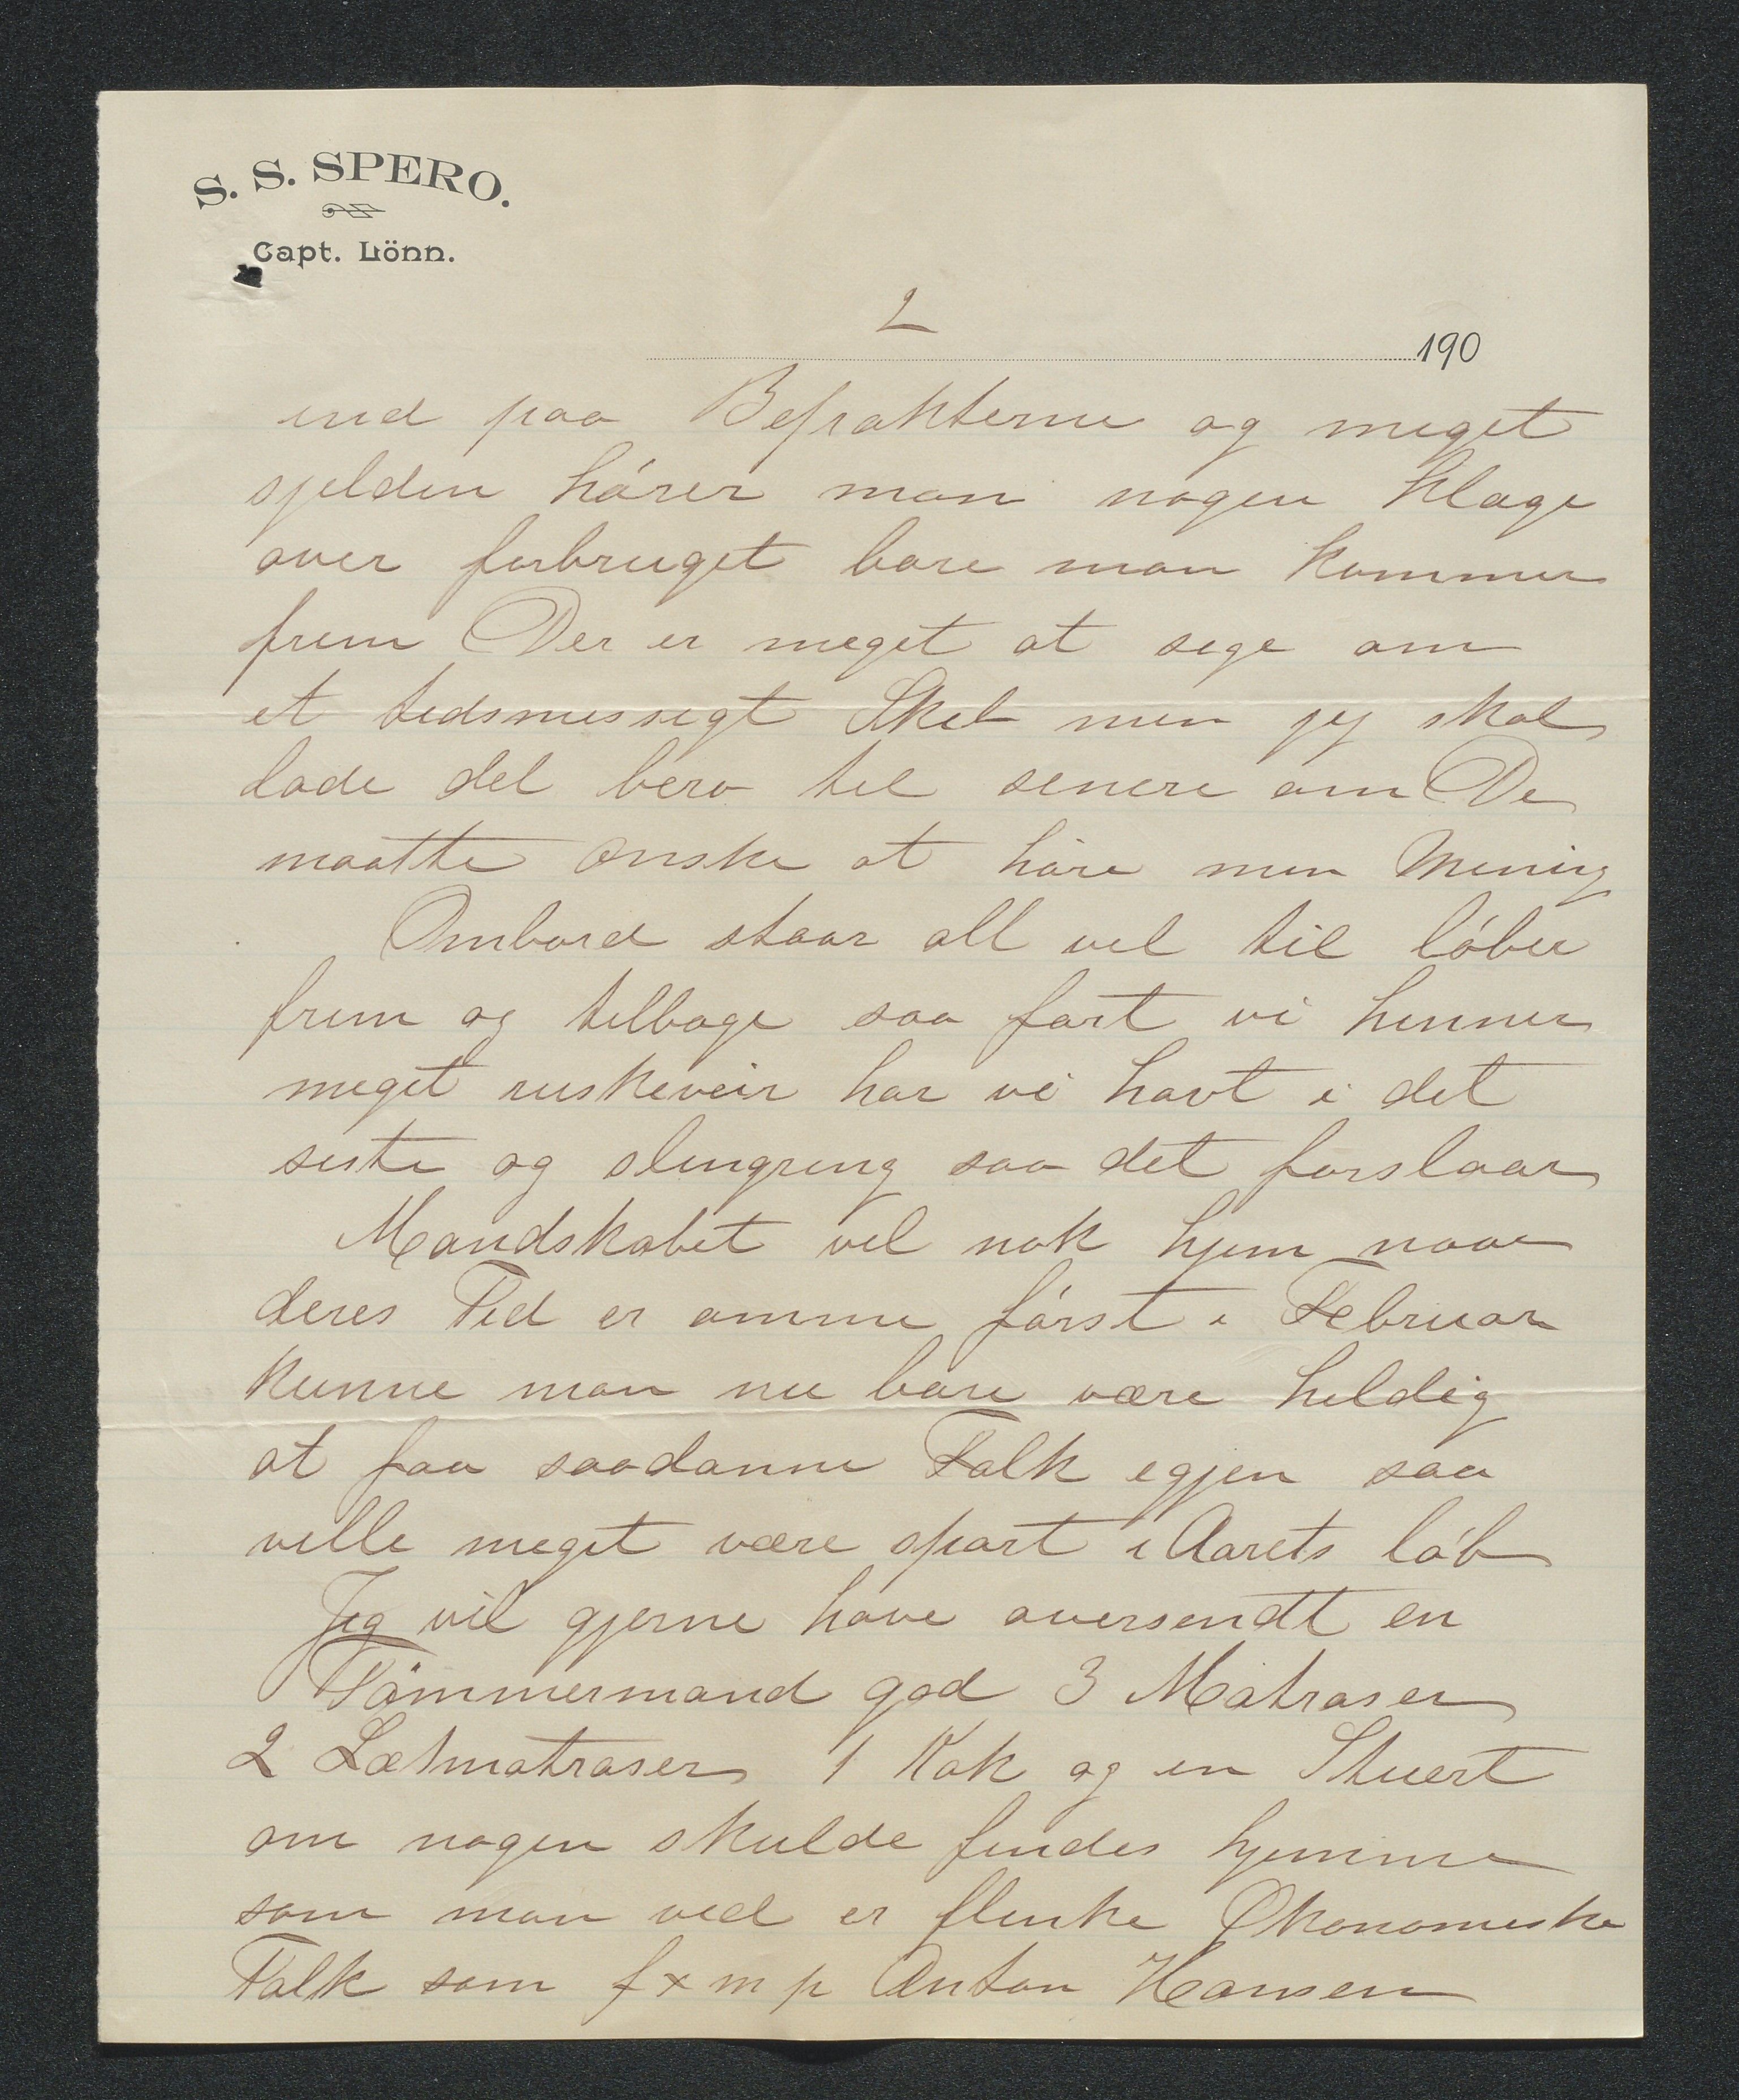 S. S. SPERO.
Capt. Lönn.
2
190
ind paa Befrakterne og meget
sjelden hörer man nogen klage
over forbruget bare man kommer
frem Der er meget at sige om
et tidsmessigt Skib men jeg skal
lade det bero til senere om De
maatte önske at höre min Mening
Ombord staar alt vel til löber
frem og tilbage saa fort vi kinner
meget ruskeveir har vi havt i det
siste og slingring saa det forslaar
Mandskabet vil nok hjem naar
deres Tid er omme först i Februar
kunne man nu bare være heldig
at faa saadanne Folk igjen saa
ville meget være spart i Aarets löb
Jeg vil gjerne have oversendt en
Tömmermand god 3 Matroser
2 Lætmatroser 1 Kok og en Stuert
om nogen skulde findes hjemme
som man ved er flinke Økonomiske
Folk som f x m p Anton Hansen